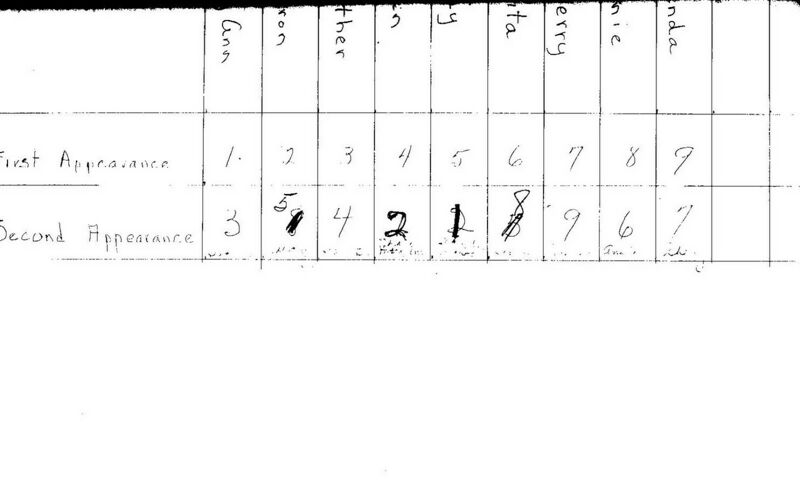 ann ron ther in y ta erry nie nda
First Appearance 1. 2 3 4 5 6 7 8 9
Second Appearance 3 5 4 2 1 8 9 6 7